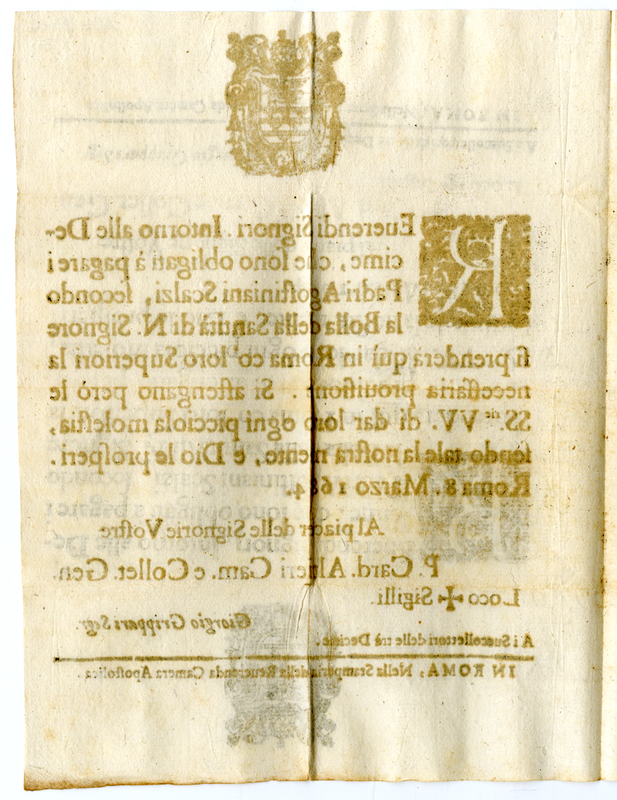 REuerendi Signori. Intorno alle De-
cime, che sono obligati à pagare i
Padri Agostiniani Scalzi, secondo
la Bolla della Santità di N. Signore
si prenderà quì in Roma cō loro Superiori la
necessaria prouisione. Si astengano però le
SS.rie VV. di dar loro ogni picciola molestia,
sendo tale la nostra mente, e Dio le prosperi.
Roma 8. Marzo 1684.
Al piacer delle Signorie Vostre
P. Card. Altieri Cam. e Collet. Gen.
Loco ✠ Sigilli.
Giorgio Grippari Segr.
A i Succollettori delle trè Decime.
IN ROMA, Nella Stamperia della Reuerenda Camera Apostolica.